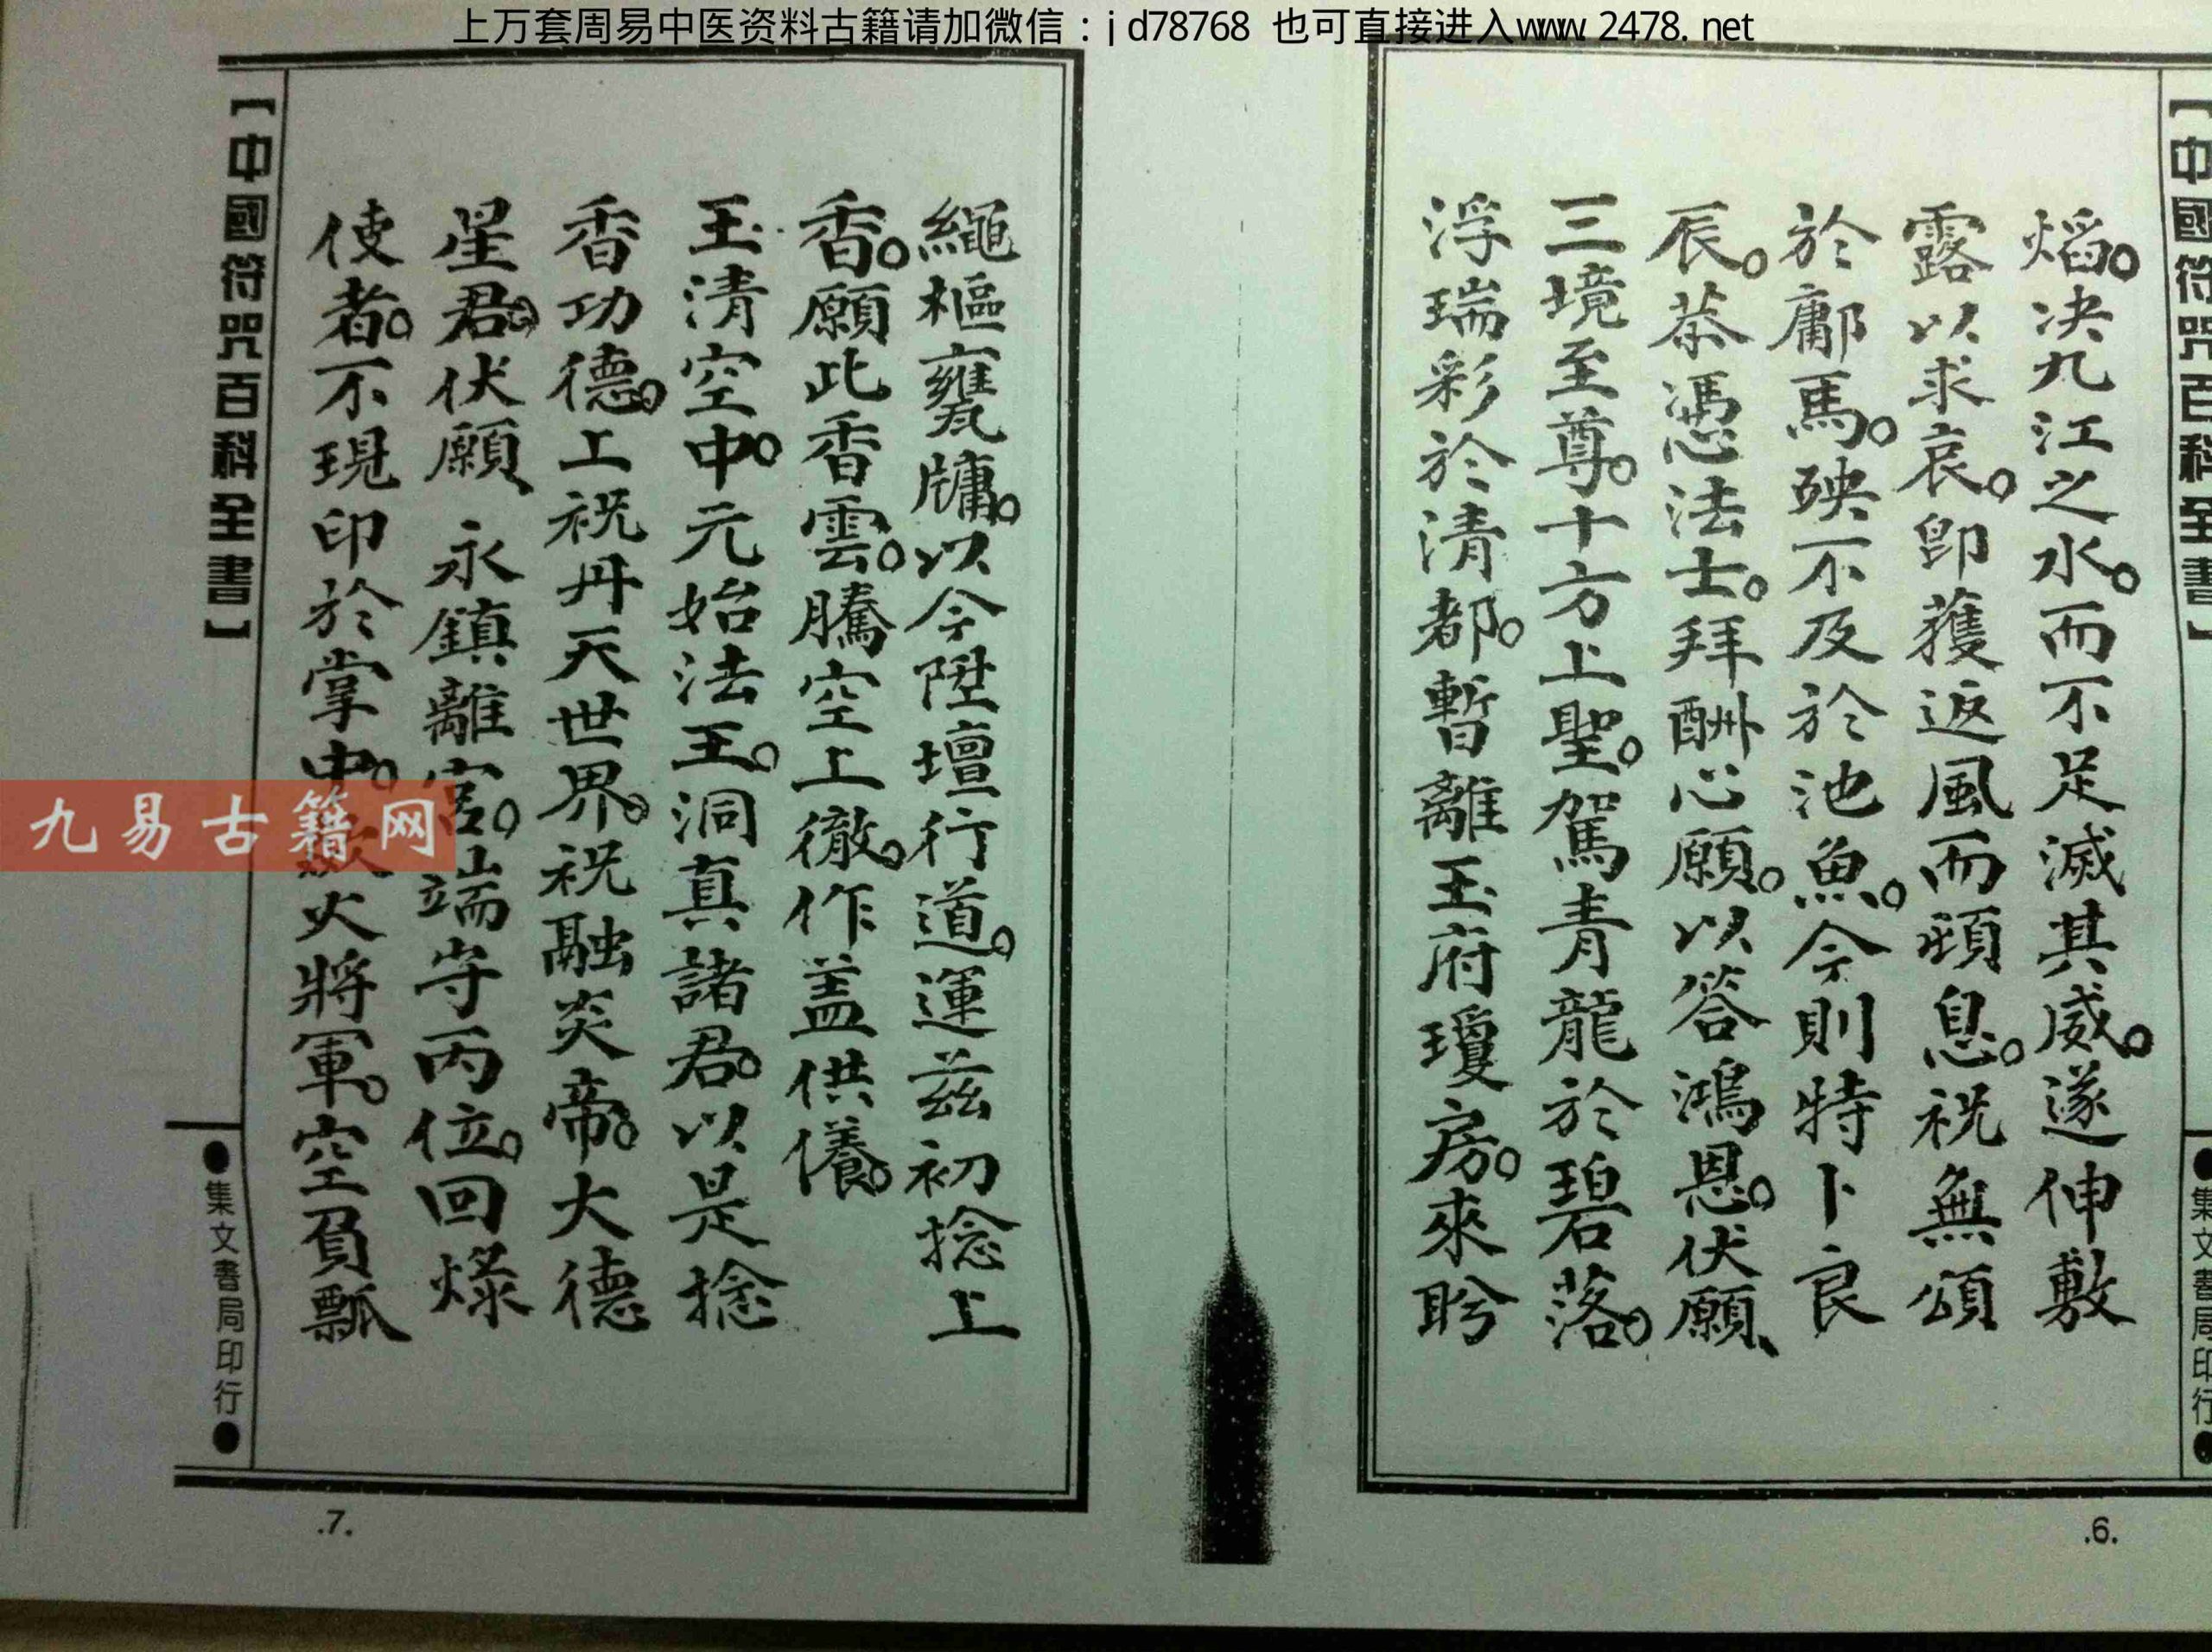 上万套周易中医资料古籍请加微信：jd78768 也可直接进入www.2478.net
【中國符咒百科全書】
●集文書局印行●
熖。决九江之水。而不足滅其威。遂伸敷
露以求哀。卽獲返風而頓息。祝無頌
於鄘馬。殃不及於池魚。今則特卜良
辰。恭憑法士。拜酬心願。以答鴻恩。伏願、
三境至尊。十方上聖。駕青龍於碧落。
浮瑞彩於清都。暫離玉府瓊房。來盻
.6.
繩樞甕牖。以今陞壇行道。運兹初捻上
香。願此香雲。騰空上徹。作盖供儀。
玉清空中。元始法王。洞真諸君。以是捻
香功德。上祝丹天世界。祝融炎帝。大德
星君。伏願、永鎮離宮。端守丙位。回燦
使者。不現印於掌中。火將軍。空負瓢
【中國符咒百科全書】
●集文書局印行●
.7.
九易古籍网